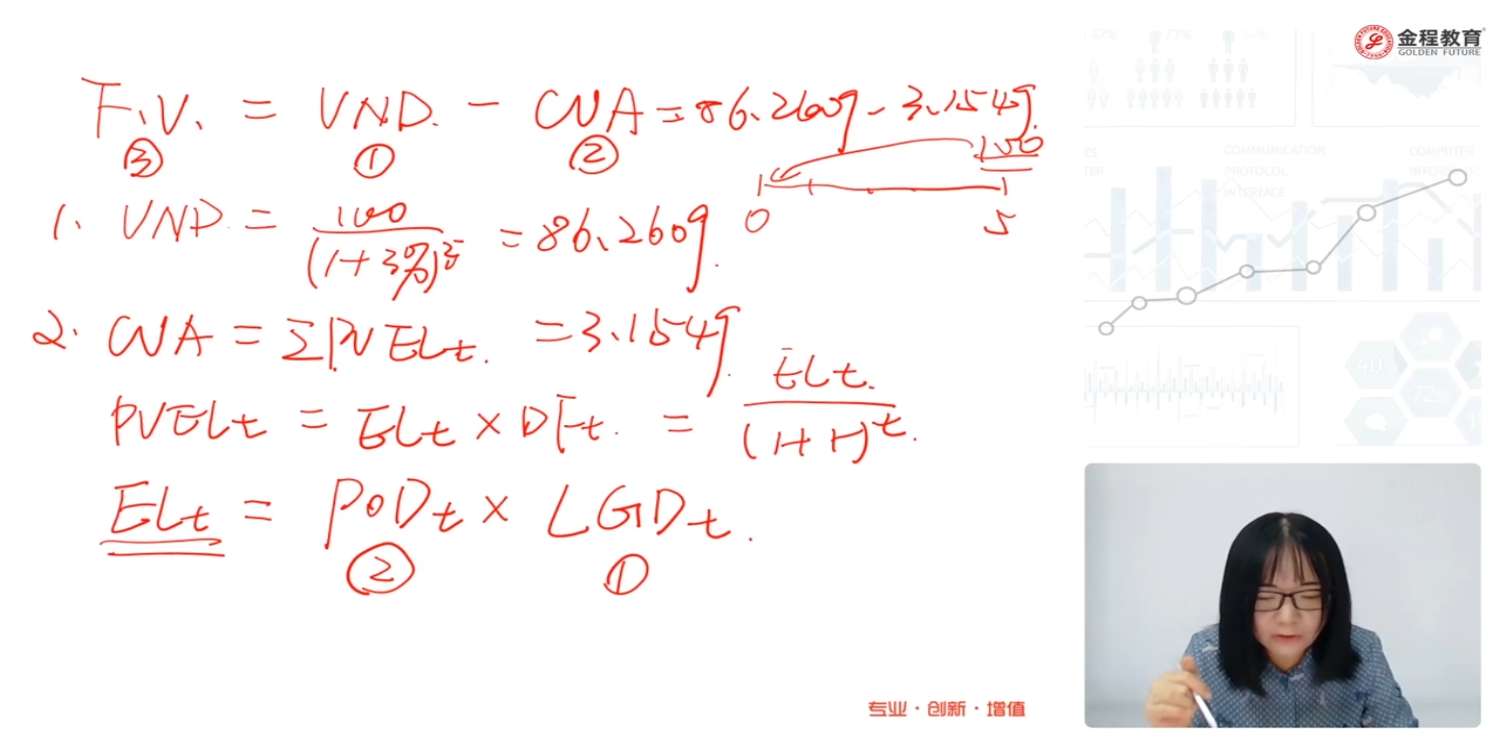 金程教育
GOLDEN FUTURE
F.V. = VND. - CVA = 86.2609 - 3.1549
③ ① ②
100
0 1 5
1. VND. = 100/(1+3%)^5 = 86.2609.
2. CVA = ΣPVELt. = 3.1549.
PVELt = ELt × DFt. = ELt./(1+r)^t.
ELt = PODt × LGDt.
② ①
COMMUNICATION
PROTOCOL
INTERFACE
专业·创新·增值